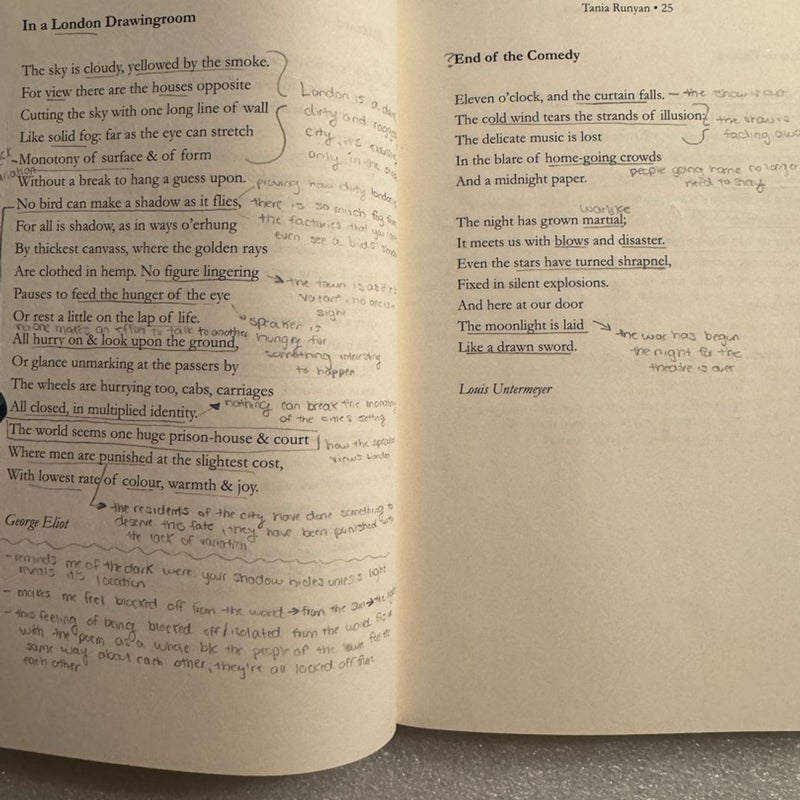 In a London Drawingroom
The sky is cloudy, yellowed by the smoke.
For view there are the houses opposite
Cutting the sky with one long line of wall
Like solid fog: far as the eye can stretch
Monotony of surface & of form
Without a break to hang a guess upon.
No bird can make a shadow as it flies,
For all is shadow, as in ways o'erhung
By thickest canvass, where the golden rays
Are clothed in hemp. No figure lingering
Pauses to feed the hunger of the eye
Or rest a little on the lap of life.
All hurry on & look upon the ground,
Or glance unmarking at the passers by
The wheels are hurrying too, cabs, carriages
All closed, in multiplied identity.
The world seems one huge prison-house & court
Where men are punished at the slightest cost,
With lowest rate of colour, warmth & joy.
George Eliot
London is a
dirty and
city, it's
only in the
proving how dirty london
there is so much fog from
the factories that you
even see a birds'
the town is
sight
speaker is
hungry for
something intresting
to happen
no one makes an effort to talk to another
nothing can break the monotony
of the cities setting
how the speaker
views London
the residents of the city have done something to
deserve this fate, they have been punished with
the lack of variation
- reminds me of the dark were your shadow hides unless light
reveals it's location
- makes me feel blocked off from the world → from the sun → the light
- this feeling of being blocked off/isolated from the world
with the poem as a whole b/c the people of the town feel the
same way about each other, they're all locked off from
each other
Tania Runyan • 25
? End of the Comedy
Eleven o'clock, and the curtain falls.
The cold wind tears the strands of illusion;
The delicate music is lost
In the blare of home-going crowds
And a midnight paper.
The night has grown martial;
It meets us with blows and disaster.
Even the stars have turned shrapnel,
Fixed in silent explosions.
And here at our door
The moonlight is laid
Like a drawn sword.
Louis Untermeyer
- the show is over
the show is
fading away
people going home no longer
need to stay
warlike
the war has begun
the night for the
theatre is over